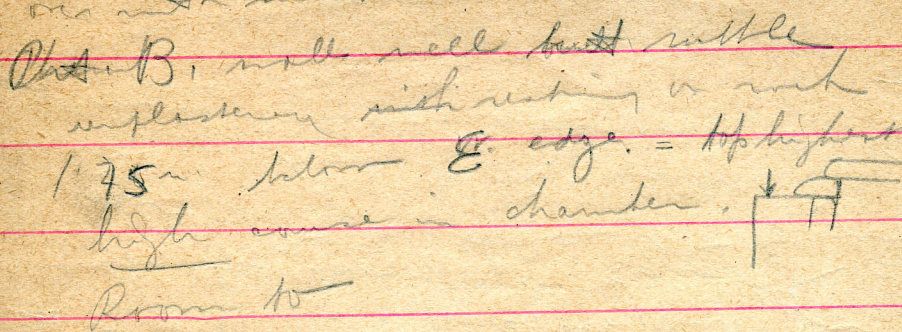 B. wall well built rubble
unplastered with resting on rock
1.75 m. below E. edge. = top highest
high course in chamber.
Room to